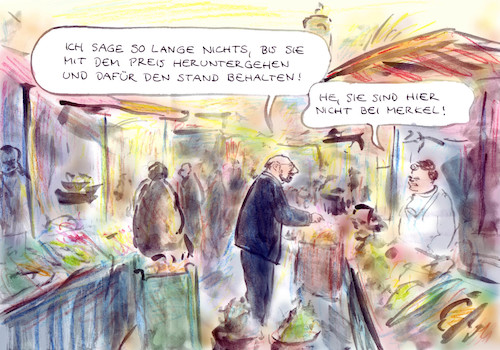 ICH SAGE SO LANGE NICHTS, BIS SIE
MIT DEM PREIS HERUNTERGEHEN
UND DAFÜR DEN STAND BEHALTEN!
HE, SIE SIND HIER
NICHT BEI MERKEL!